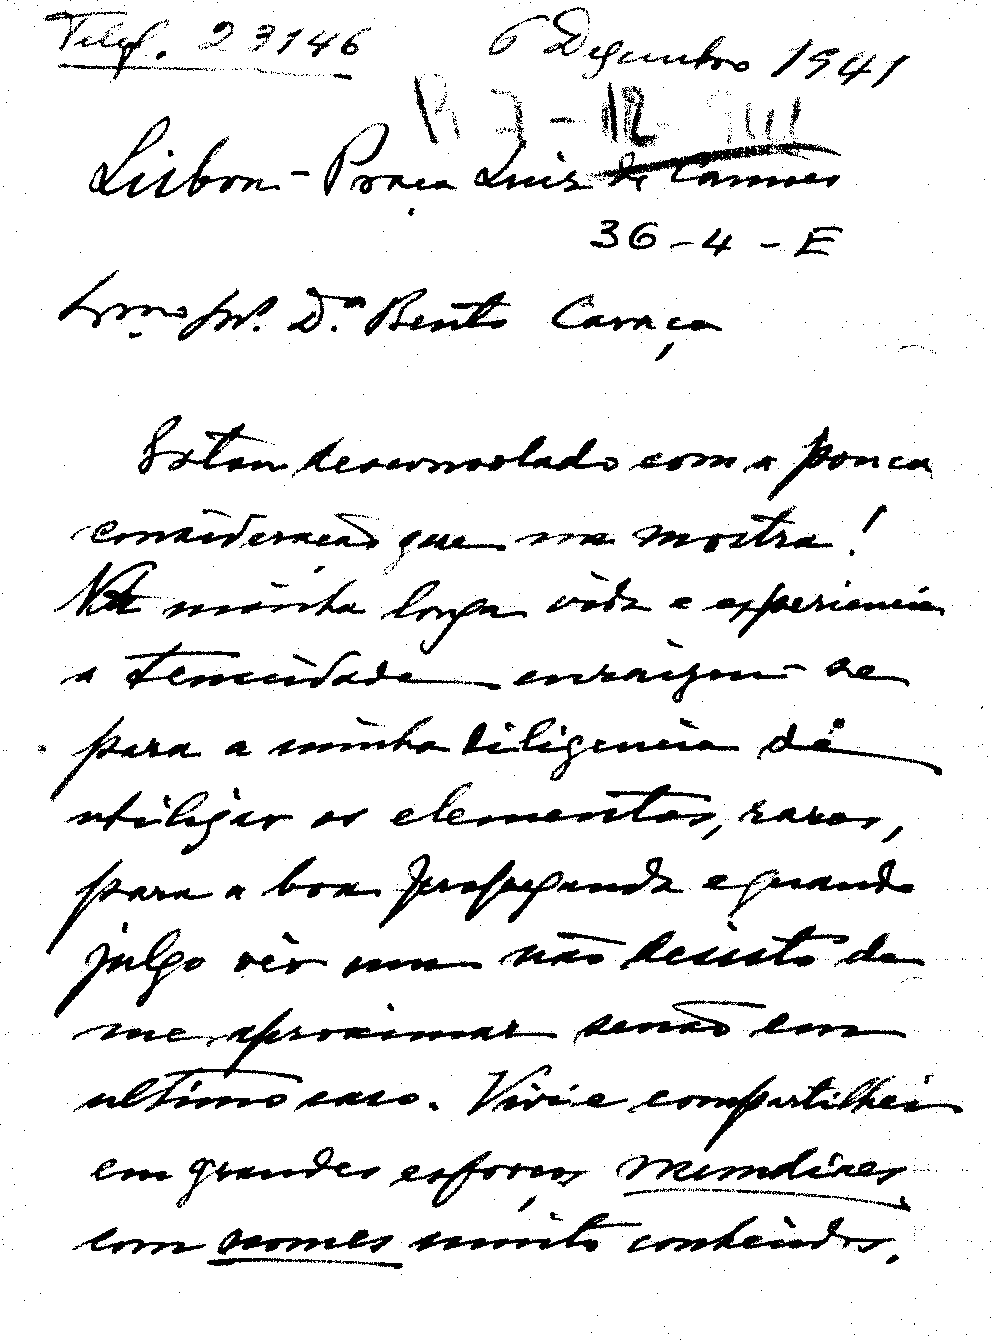 Telef. 23146 6 Dezembro 1941
R 7-12
Lisboa - Praça Luiz de Camões
36-4-E
Exmo Snr. Dr. Bento Caraça
Estou desconsolado com a pouca
consideração que me mostra!
Na minha longa vida e experiencia
a tenacidade enraizou-se
para a minha diligencia de
utilizar os elementos, raros,
para a boa propaganda e quando
julgo vêr um não desisto de
me aproximar senão em
ultimo caso. Vivi e compartilhei
em grandes esforços mundiaes
com nomes muito conhecidos.